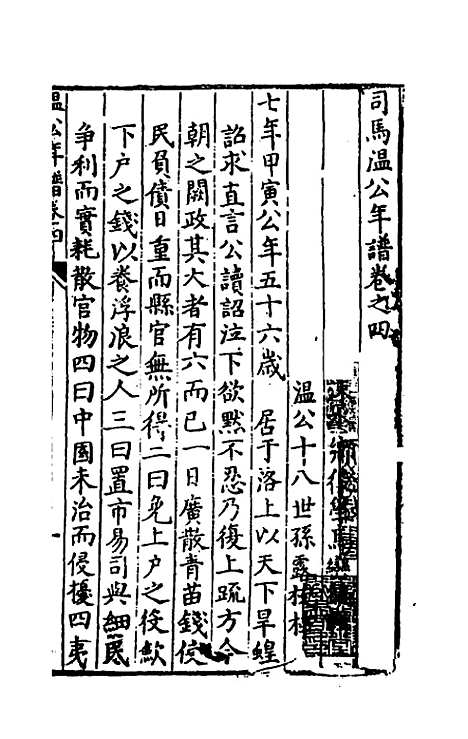 司馬温公年譜卷之四
温公十八世孫露
七年甲寅公年五十六歲　居于洛上以天下旱蝗
詔求直言公讀詔泣下欲默不忍乃復上疏方今
朝之闕政其大者有六而已一曰廣散青苗錢使
民負債日重而縣官無所得二曰免上户之役歛
下户之錢以養浮浪之人三曰置市易司與細民
争利而實耗散官物四曰中國未治而侵擾四夷
温公年譜卷四